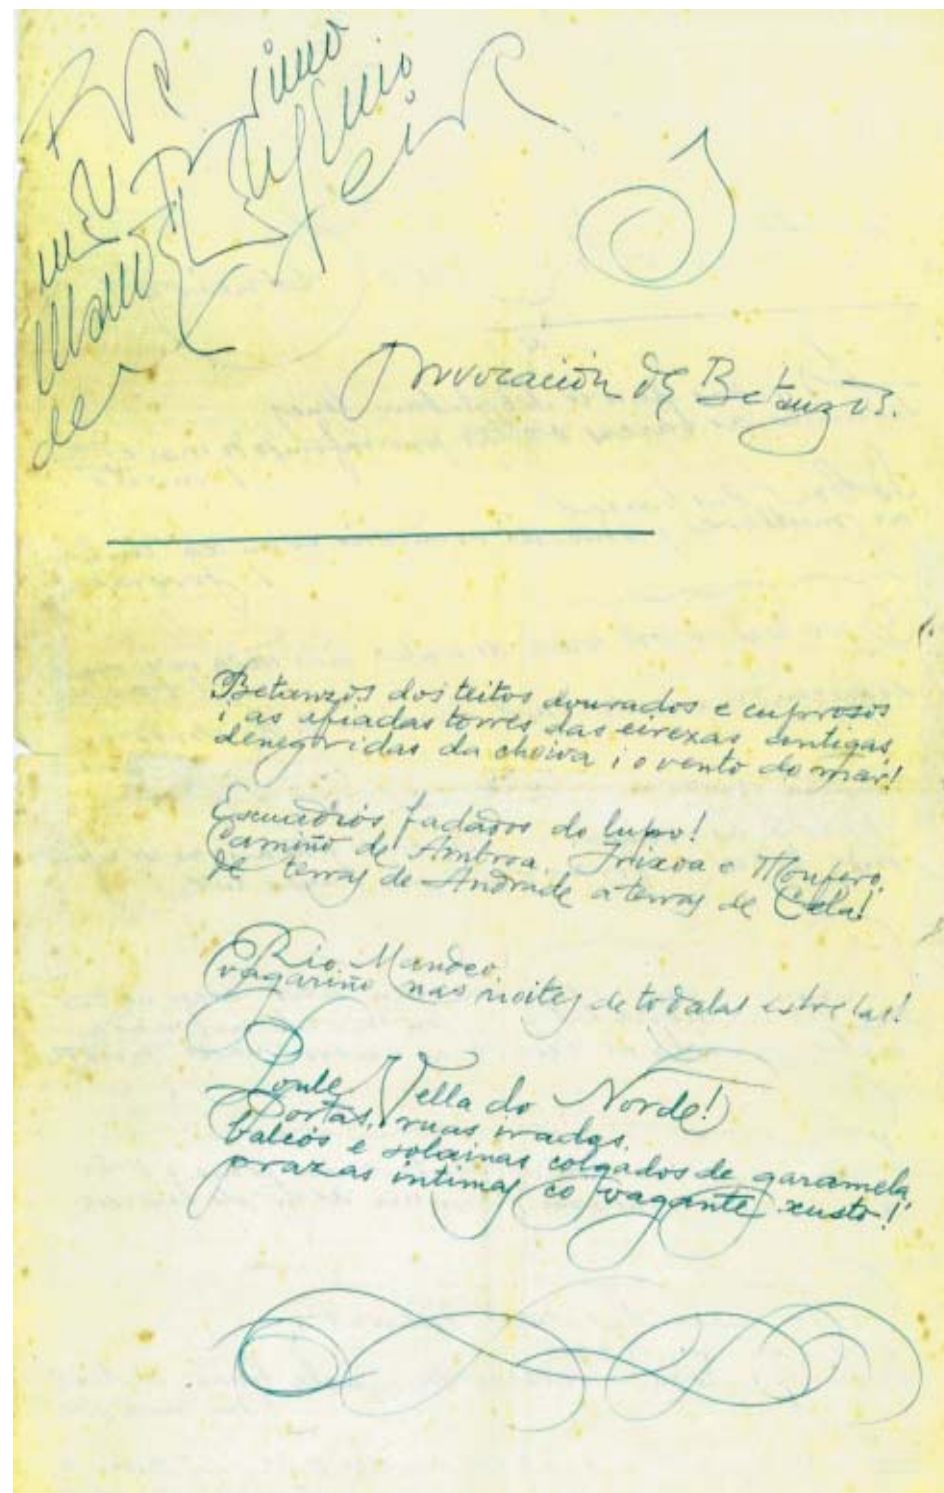 meu
Betanzos.
Betanzos dos teitos dourados e cuprosos
i as afiadas torres das eirexas antigas,
denegridas da choiva i o vento do mar!
Escudios fadados do lupo!
Camiño de Ambroa, Irixoa e Monfero,
de terras de Andrade a terras de Cela!
Río Mandeo,
vagariño nas noites de todalas estrelas!
Ponte Vella do Norde!
Portas, ruas iradas,
balcós e solainas colgados de garamela,
prazas intimas co vagante xusto!